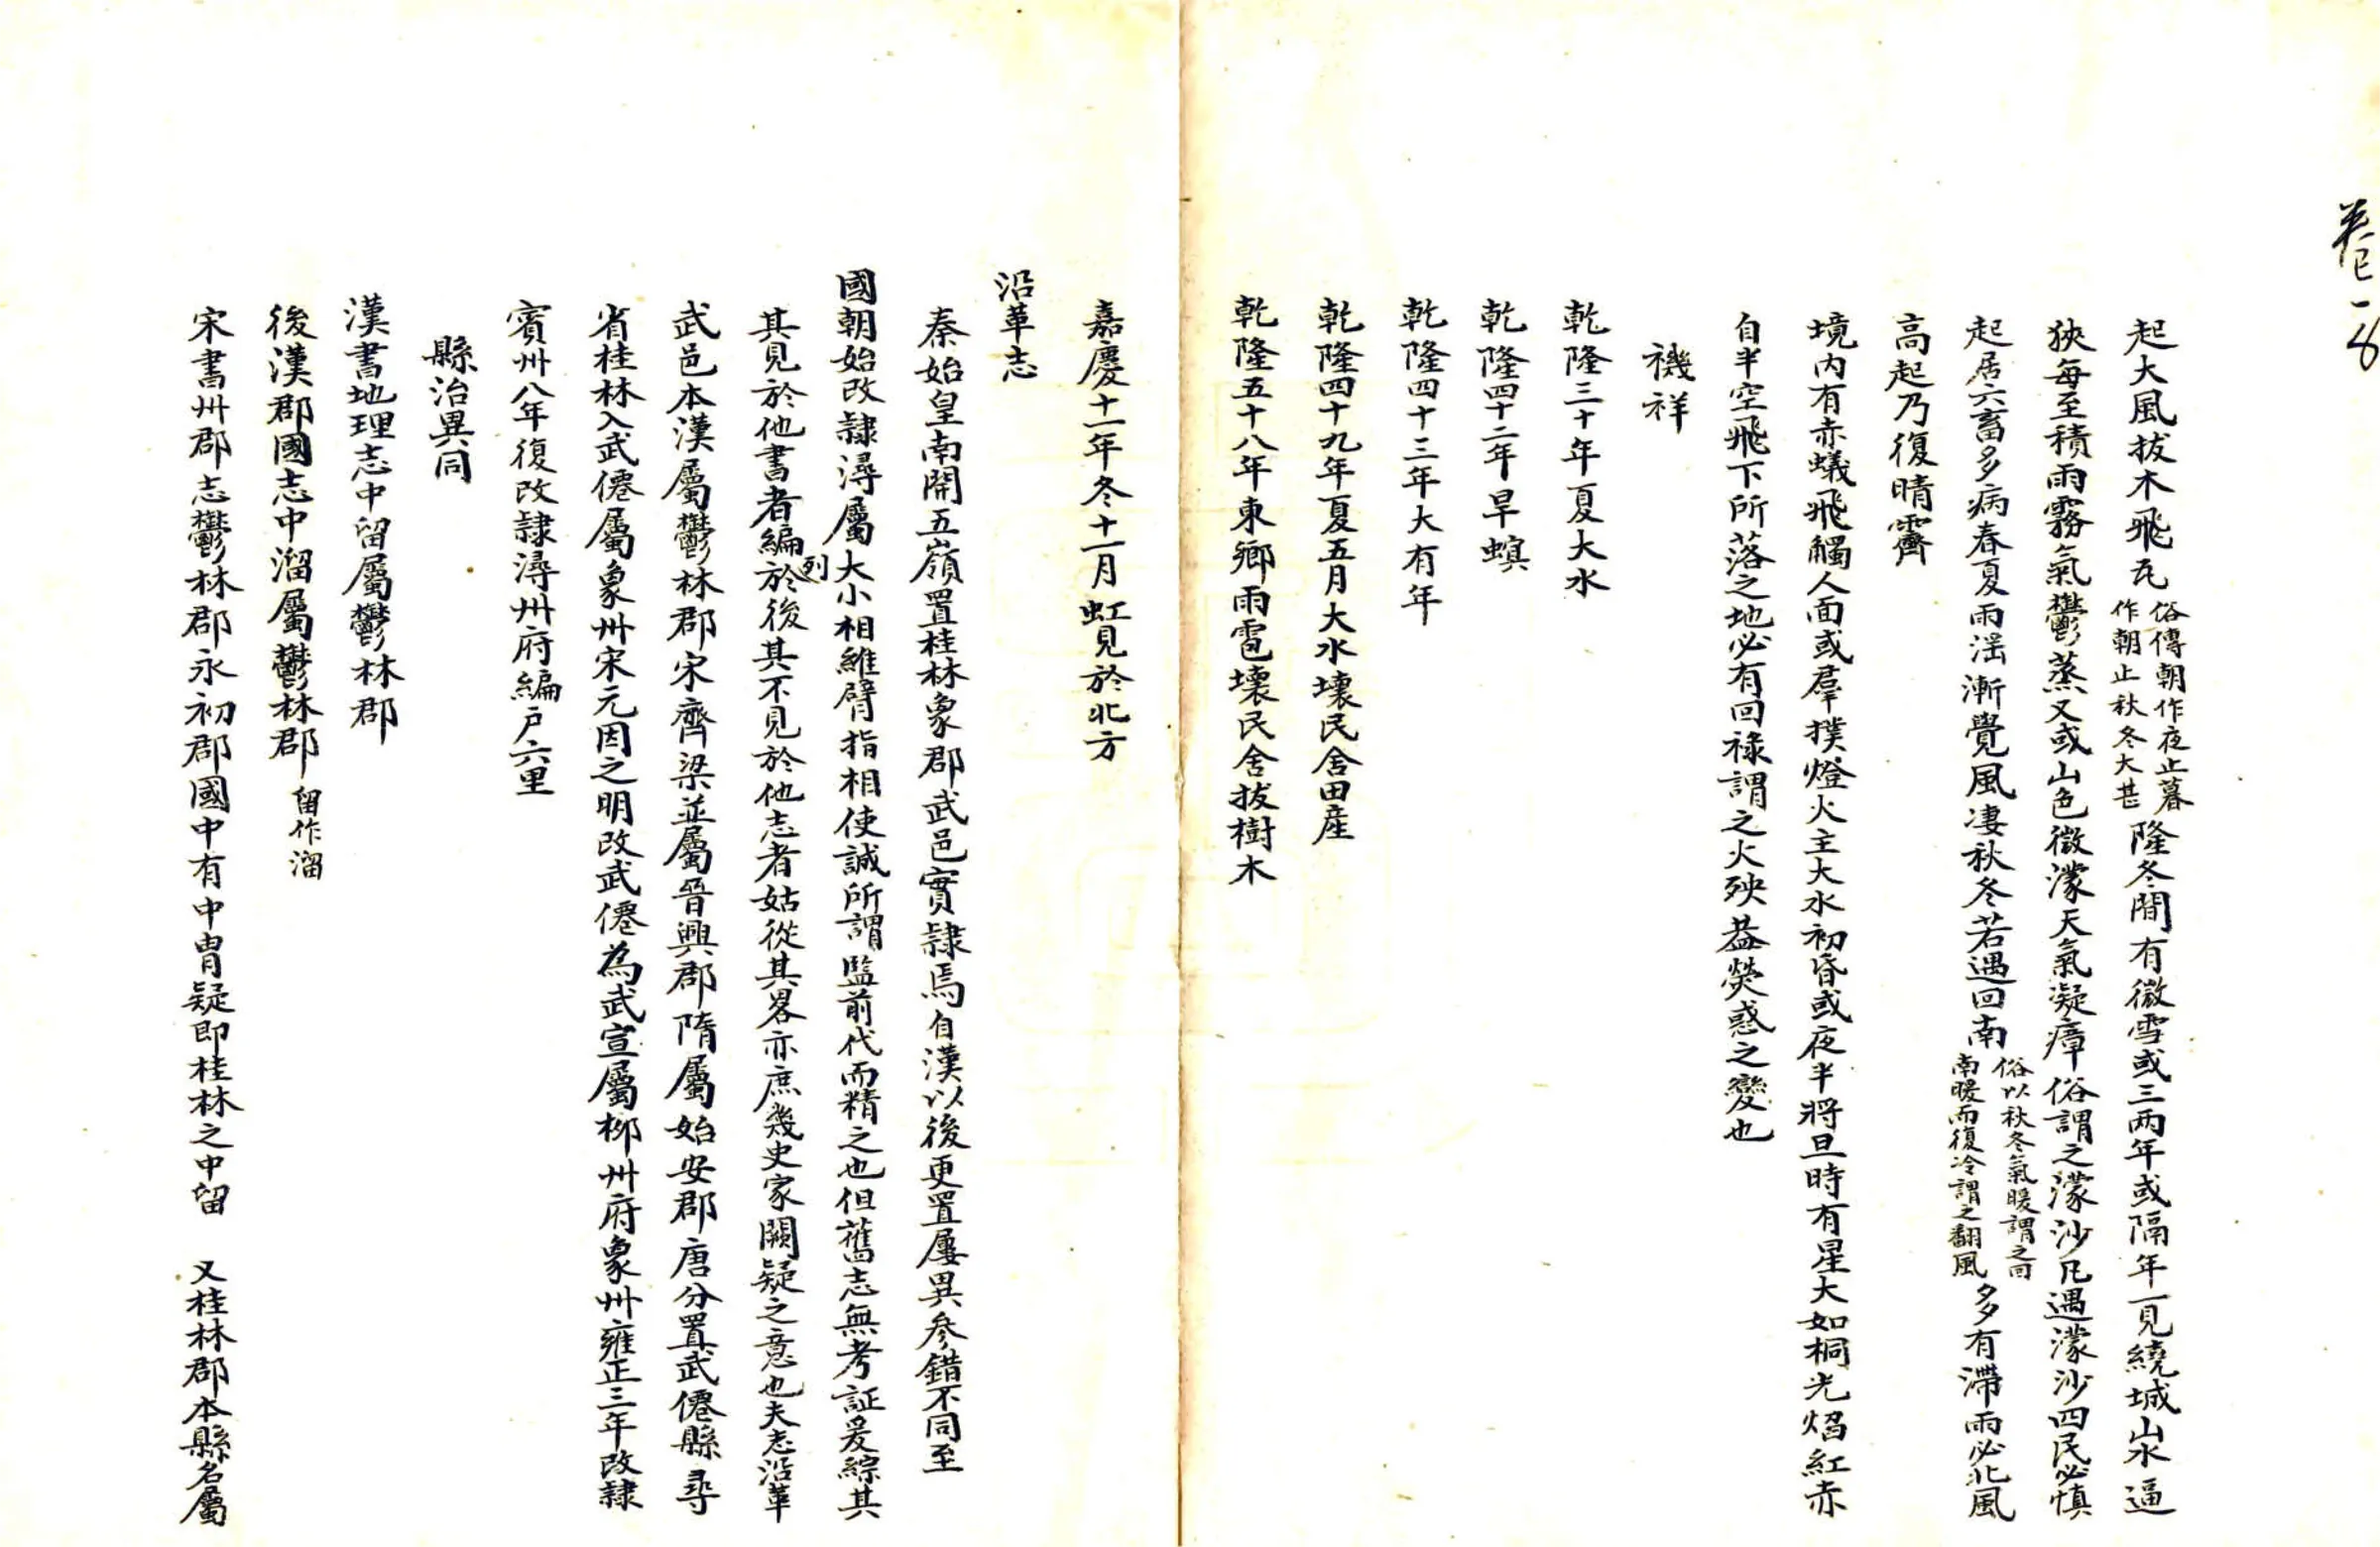 卷一 8
起大風拔木飛瓦俗傳朝作夜止暮作朝止秋冬大甚隆冬間有微雪或三两年或隔年一見繞城山水逼
狹每至積雨霧氣鬱蒸又或山色微濛天氣凝瘴俗謂之濛沙凡遇濛沙四民必慎
起居六畜多病春夏雨溼漸覺風凄秋冬若遇回南俗以秋冬氣暖謂之回南暖而復冷謂之翻風多有滯雨必北風
高起乃復晴霽
境内有赤蟻飛觸人面或羣撲燈火主大水初昏或夜半將旦時有星大如桐光焰紅赤
自半空飛下所落之地必有回祿謂之火殃葢熒惑之變也
禨祥
乾隆三十年夏大水
乾隆四十二年旱螟
乾隆四十三年大有年
乾隆四十九年夏五月大水壞民舍田産
乾隆五十八年東鄉雨雹壞民舍拔樹木
嘉慶十一年冬十一月虹見於北方
沿革志
秦始皇南開五嶺置桂林象郡武邑實隸焉自漢以後更置屢異參錯不同至
國朝始改隸潯屬大小相維臂指相使誠所謂監前代而精之也但舊志無考証爰綜其
其見於他書者編列於後其不見於他志者姑從其畧亦庶幾史家闕疑之意也夫志沿革
武邑本漢屬鬱林郡宋齊梁並屬晉興郡隋屬始安郡唐分置武僊縣尋
省桂林入武僊屬象州宋元因之明改武僊為武宣屬柳州府象州雍正三年改隸
賓州八年復改隸潯州府編戶六里
縣治異同
漢書地理志中留屬鬱林郡
後漢郡國志中溜屬鬱林郡留作溜
宋書州郡志鬱林郡永初郡國中有中胄疑即桂林之中留 又桂林郡本縣名屬